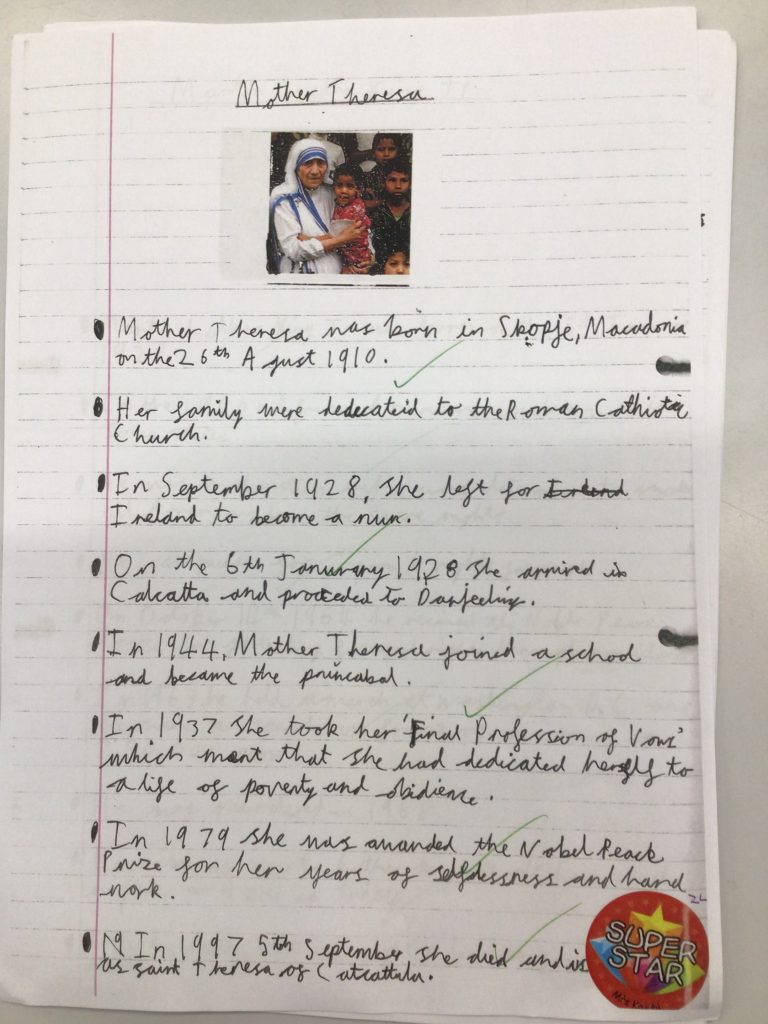 Mother Theresa
Mother Theresa was born in Skopje, Macadonia
on the 26th August 1910.
Her family were dedecateid to the Roman Catholic
Church.
In September 1928, she left for
Ireland to become a nun.
On the 6th Janurary 1928 she arrived in
Calcatta and proceded to Darjeeling.
In 1944, Mother Theresa joined a school
and became the princabal.
In 1937 she took her 'Final Profession of Vows'
which ment that she had dedicated herself to
a life of poverty and obidience.
In 1979 she was awarded the Nobel Peack
Prize for her years of selflessness and hard
work.
In 1997 5th September she died and is
as saint Theresa of Catcattala.
SUPER
STAR